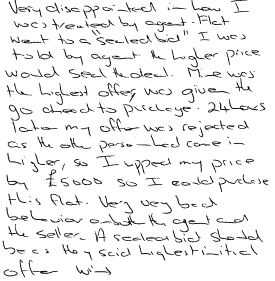 Very disappointed in how I
was treated by agent. Flat
went to a "sealed bid" I was
told by agent the higher price
would seal the deal. Mine was
the highest offer, was given the
go ahead to purchase. 24 hours
later my offer was rejected
as the other person had come in
higher, so I upped my price
by £5000 so I could purchase
this flat. Very very bad
behavior on both the agent and
the seller. A sealed bid should
be as they said highest initial
offer wins